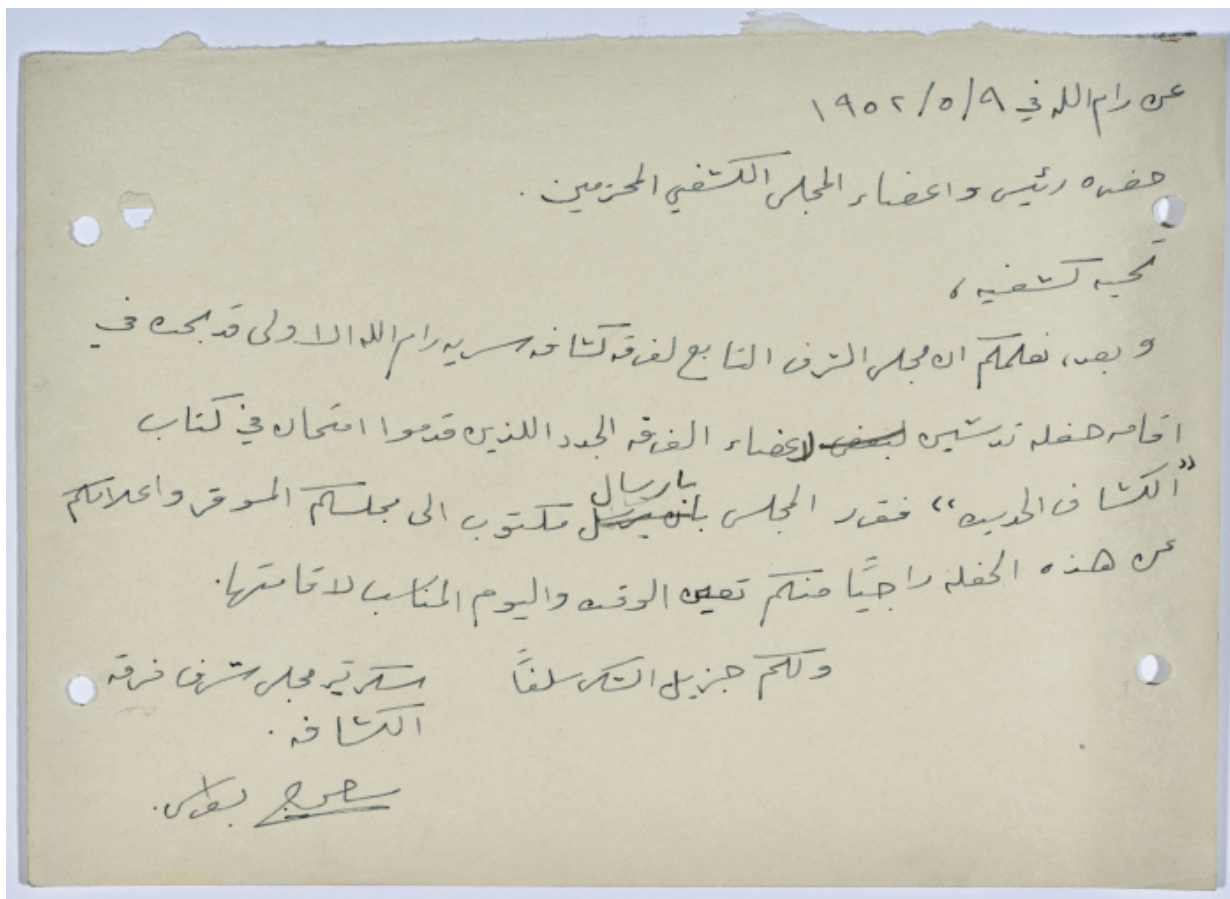 عن رام الله في ٩/٥/١٩٥٢
حضرة رئيس واعضاء المجلس الكشفي المحترمين.
تحيه كشفيه،
وبعد، نعلمكم ان مجلس الشرف التابع لفرقة كشافه سريه رام الله الاولى قد بحث في
اقامه حفله تدشين لبعض لاعضاء الفرقه الجدد اللذين قدموا امتحان في كتاب
"الكشاف الحديث" فقرر المجلس بارسال مكتوب الى مجلسكم الموقر واعلامكم
عن هذه الحفله راجيًا منكم تعين الوقت واليوم المناسب لاقامتها.
ولكم جزيل الشكر سلفًا
سكرتير مجلس شرف فرقه
الكشافه.